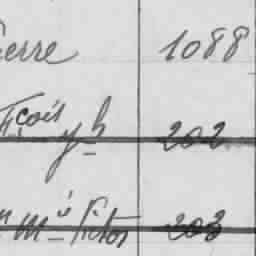 ierre 1088
Fçois yh 202
m ie Victor 203